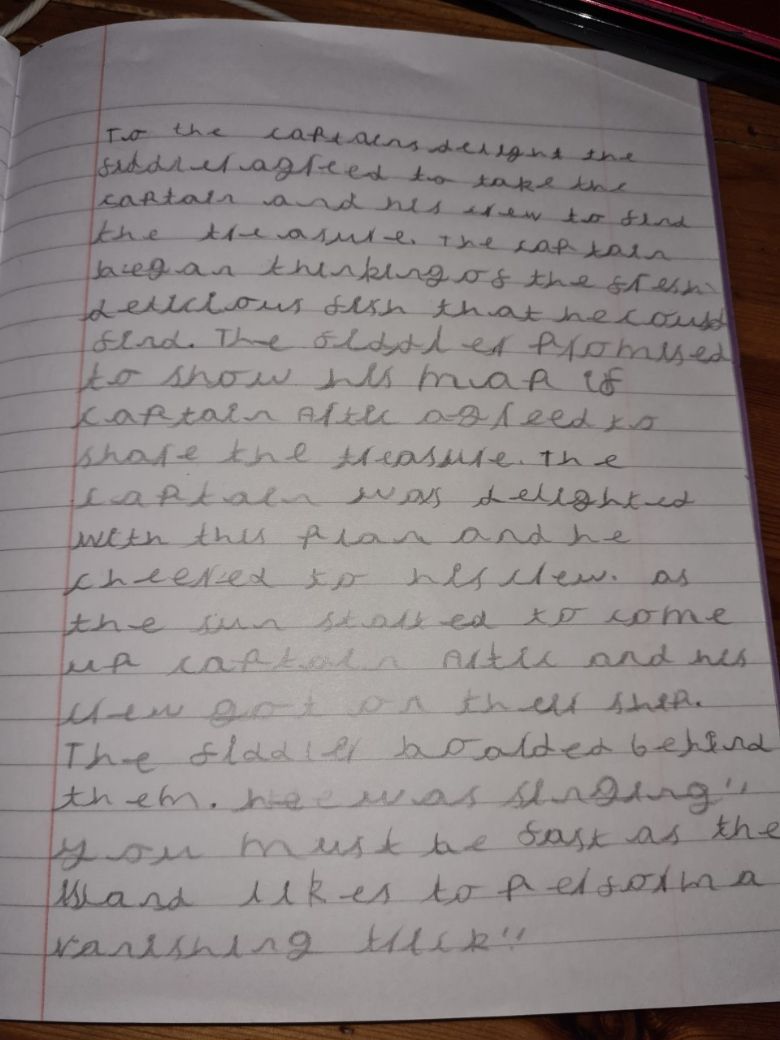 To the captains delight the
fiddler agreed to take the
captain and his crew to find
the treasure. The captain
began thinking of the fresh
delicious fish that he could
find. The fiddler promised
to show his map if
captain Artic agreed to
share the treasure. The
captain was delighted
with this plan and he
cheered to his crew. as
the sun started to come
up captain Artic and his
crew got on their ship.
The fiddler boarded behind
them. He was singing "
you must be fast as the
island likes to perform a
vanishing trick"